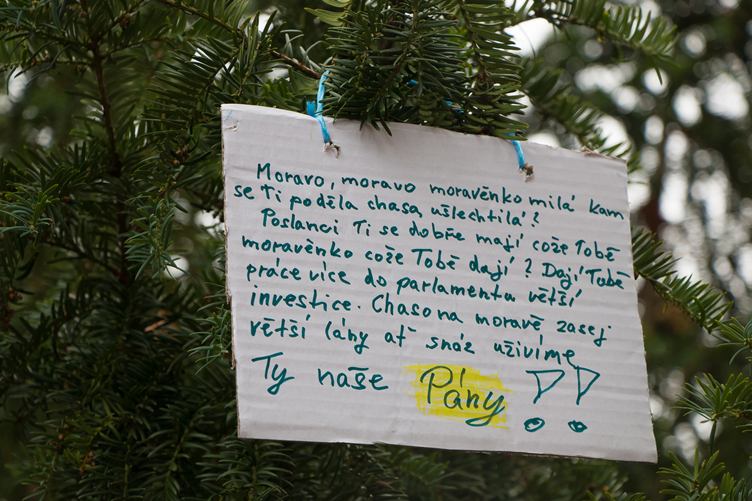 Moravo, moravo moravěnko milá kam
se Ti poděla chasa ušlechtilá?
Poslanci Ti se dobře mají cože Tobě
moravěnko cože Tobě dají? Dají Tobě
práce více do parlamenta větší
investice. Chaso na moravě zasej
větší lány ať snáz uživíme
Ty naše Pány!!